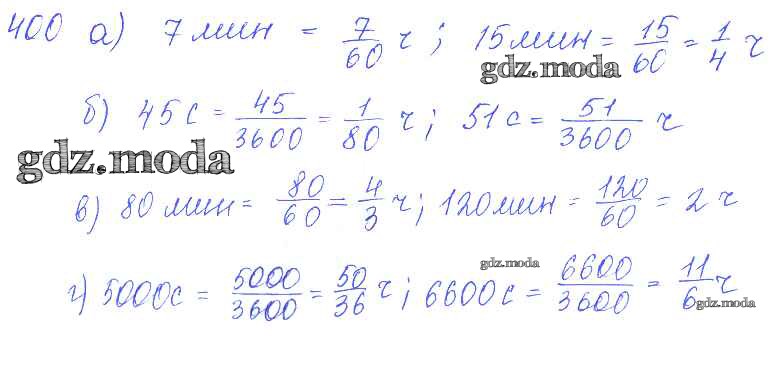 400 а) 7 мин = 7/60 ч; 15 мин = 15/60 = 1/4 ч
gdz.moda
б) 45 с = 45/3600 = 1/80 ч; 51 с = 51/3600 ч
gdz.moda
в) 80 мин = 80/60 = 4/3 ч; 120 мин = 120/60 = 2 ч
gdz.moda
г) 5000 с = 5000/3600 = 50/36 ч; 6600 с = 6600/3600 = 11/6 ч
gdz.moda